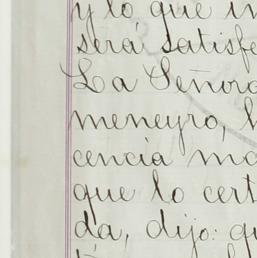 y lo que in
será satisfe
La Señora
meneyro, h
cencia ma
que lo cert
da, dijo: qu